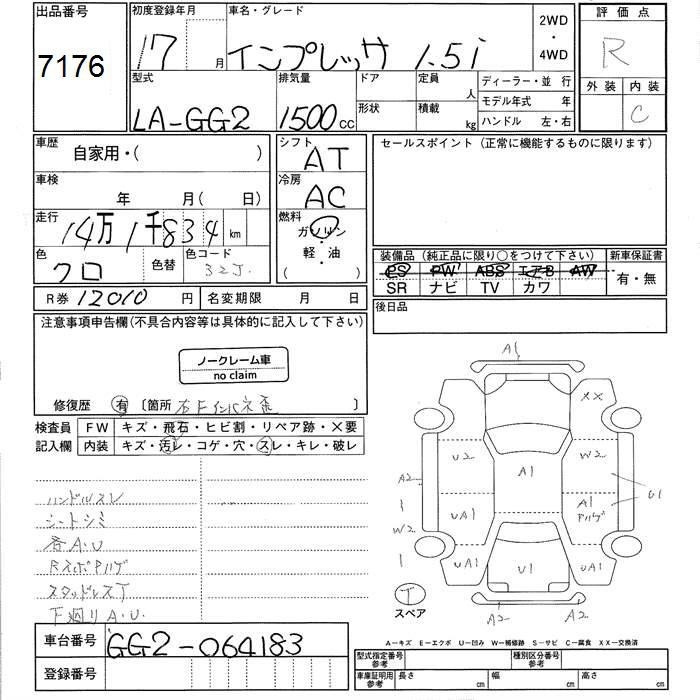 出品番号
7176
初度登録年月
17 月
車名・グレード
インプレッサ 1.5i
2WD
・
4WD
評価点
R
外装 内装
C
型式
LA-GG2
排気量
1500cc
ドア
形状
定員
人
積載
kg
ディーラー・並 行
モデル年式 年
ハンドル 左・右
車歴
自家用・( )
車検
年 月( 日)
走行
14万1千834km
色
クロ
色替
色コード
32J.
R券 12010円
名変期限 月 日
シフト
AT
冷房
AC
燃料
ガソリン
・
軽・油
( )
セールスポイント(正常に機能するものに限ります)
装備品(純正品に限り○をつけて下さい)
PS PW ABS エアB AW
SR ナビ TV カワ
新車保証書
有・無
後日品
注意事項申告欄(不具合内容等は具体的に記入して下さい)
ノークレーム車
no claim
修復歴 有 〔箇所 右Fインパネ歪 〕
検査員
記入欄
FW キズ・飛石・ヒビ割・リペア跡・×要
内装 キズ・汚レ・コゲ・穴・スレ・キレ・破レ
ハンドルスレ
シートシミ
各A.U
RスポPハゲ
スタッドレスT
下廻りA.U.
A1
XX
U2
A1
W2
A2
W2
UA1
A1
Pハゲ
U1
UA1
U1
UA1
T
スペア
A2
A2
A-キズ E-エクボ U-凹み W-補修跡 S-サビ C-腐食 XX-交換済
車台番号
GG2-064183
登録番号
型式指定番号
参考
種別区分番号
参考
車庫証明用
参考
長さ cm
幅 cm
高さ cm